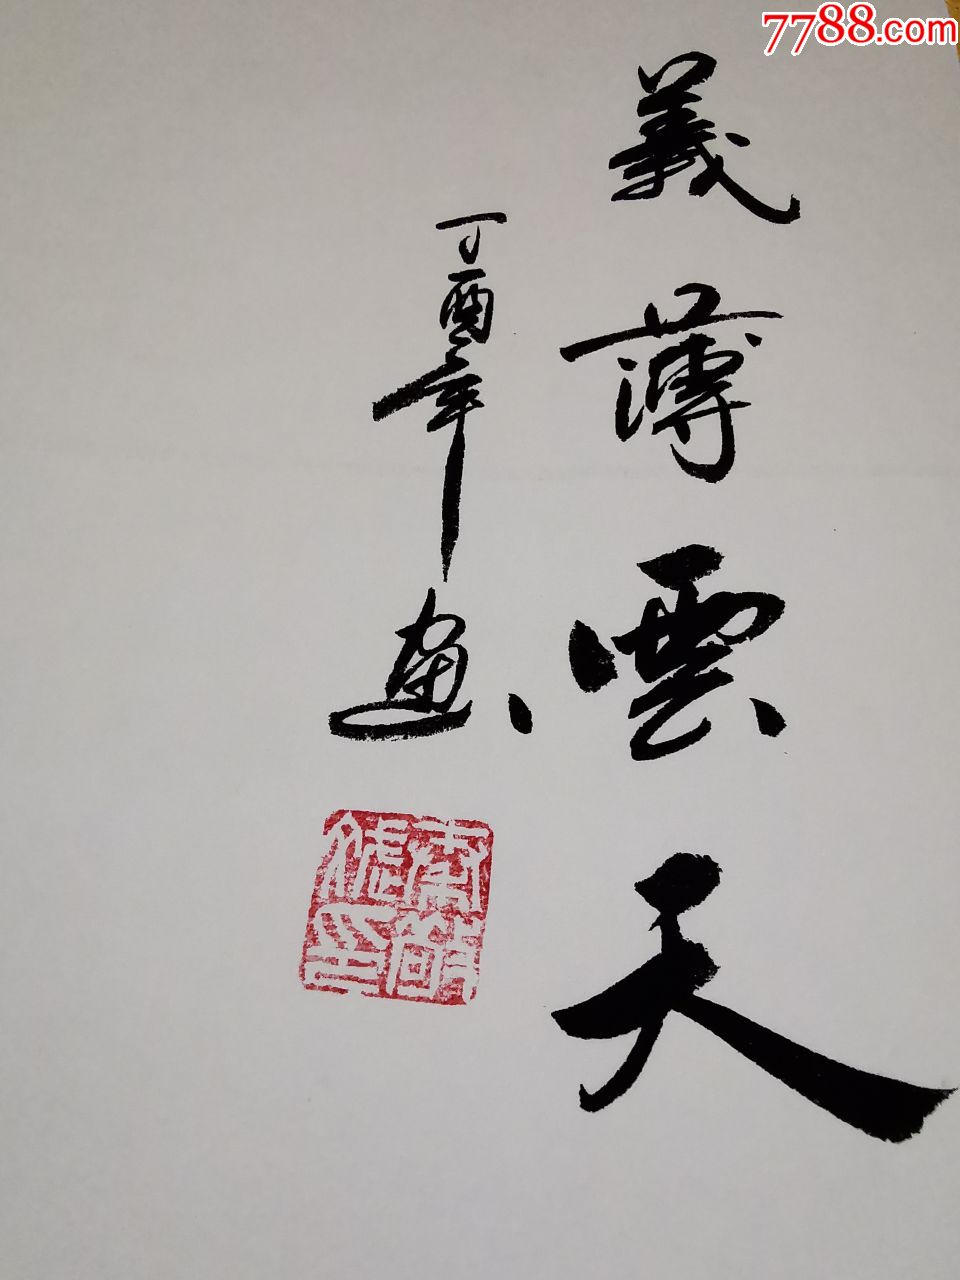 7788.com
義薄雲天
丁酉年画